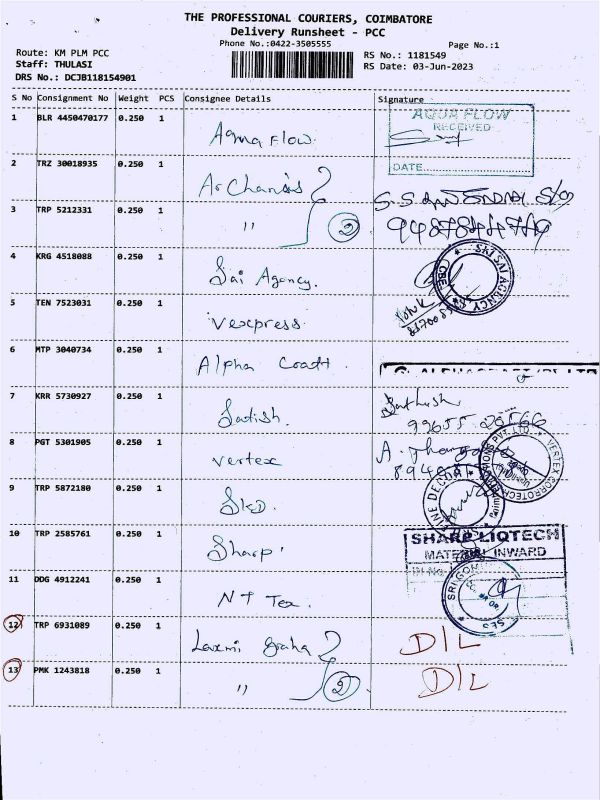 THE PROFESSIONAL COURIERS, COIMBATORE
Delivery Runsheet - PCC
Phone No.:0422-3505555
Page No.:1
Route: KM PLM PCC
Staff: THULASI
DRS No.: DCJB118154901
RS No.: 1181549
RS Date: 03-Jun-2023
S No Consignment No Weight PCS Consignee Details Signature
1 BLR 4450470177 0.250 1 Aqua Flow
AQUA FLOW
RECEIVED
DATE
2 TRZ 30018935 0.250 1
3 TRP 5212331 0.250 1 " 2
4 KRG 4518088 0.250 1 Sai Agency.
SRI SAI AGENCY
CBE
5 TEN 7523031 0.250 1 Vexpress
6 MTP 3040734 0.250 1 Alpha
7 KRR 5730927 0.250 1 Satish. Sathish
8 PGT 5301905 0.250 1 Vertex
9 TRP 5872180 0.250 1 SKD.
10 TRP 2585761 0.250 1 Sharp
SHARP LIQTECH
MATERIAL INWARD
11 DDG 4912241 0.250 1 N T Tex.
12 TRP 6931089 0.250 1 Laxmi D/L
13 PMK 1243818 0.250 1 " 2 D/L